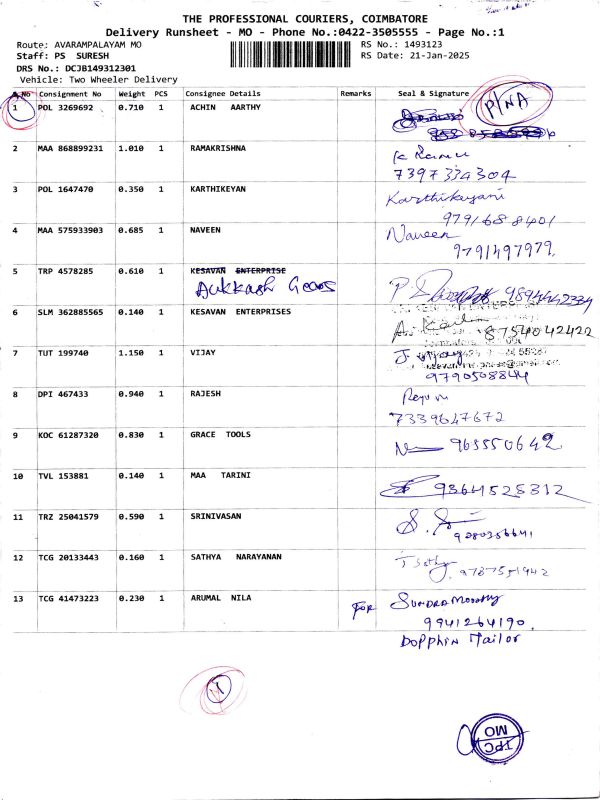 THE PROFESSIONAL COURIERS, COIMBATORE
Delivery Runsheet - MO - Phone No.:0422-3505555 - Page No.:1
Route: AVARAMPALAYAM MO RS No.: 1493123
Staff: PS SURESH RS Date: 21-Jan-2025
DRS No.: DCJB149312301
Vehicle: Two Wheeler Delivery
S.No Consignment No Weight PCS Consignee Details Remarks Seal & Signature
P/NA
1 POL 3269692 0.710 1 ACHIN AARTHY
2 MAA 868899231 1.010 1 RAMAKRISHNA
7397334304
3 POL 1647470 0.350 1 KARTHIKEYAN Karthikeyani
9791688401
4 MAA 575933903 0.685 1 NAVEEN Naveen
9791497979
5 TRP 4578285 0.610 1 KESAVAN ENTERPRISE
Aukkash Gears 9894442334
6 SLM 362885565 0.140 1 KESAVAN ENTERPRISES 8754042422
7 TUT 199740 1.150 1 VIJAY
9790508844
8 DPI 467433 0.940 1 RAJESH
7339647672
9 KOC 61287320 0.830 1 GRACE TOOLS 963550642
10 TVL 153881 0.140 1 MAA TARINI 9364525312
11 TRZ 25041579 0.590 1 SRINIVASAN
9280356641
12 TCG 20133443 0.160 1 SATHYA NARAYANAN
9787551942
13 TCG 41473223 0.230 1 ARUMAL NILA FOR SUNDRAMOORTHY
9941264190
DOPPHIN Tailor
TPC
MO